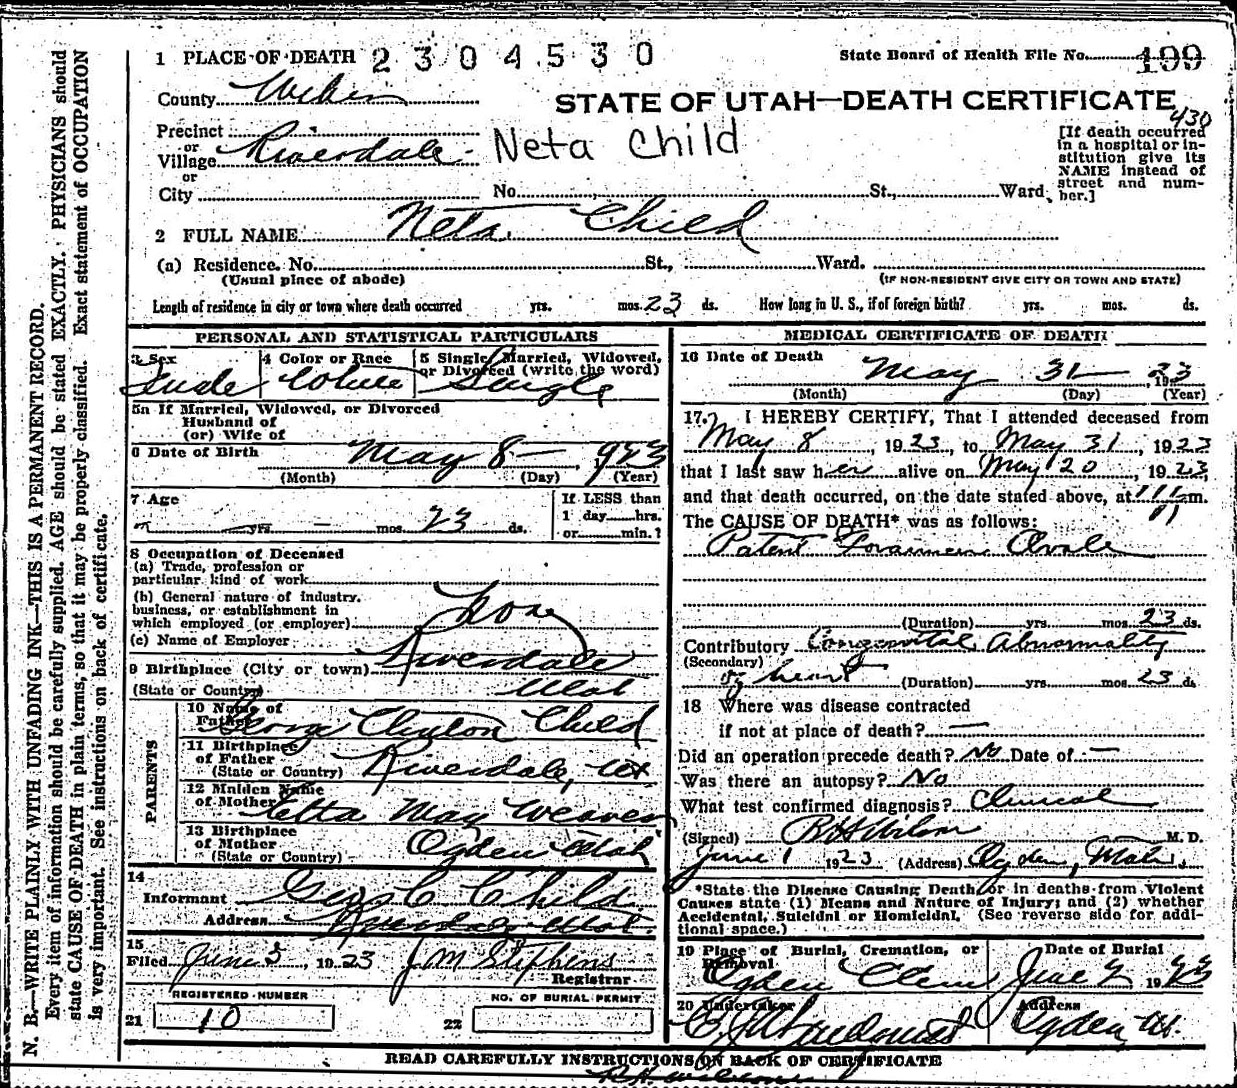 1 PLACE OF DEATH 2304530 State Board of Health File No. 199
County Weber
STATE OF UTAH—DEATH CERTIFICATE
430
Precinct
or
Village Riverdale Neta Child
or
City No. St., Ward.
[If death occurred in a hospital or in-
stitution give its
NAME instead of
street and num-
ber.]
2 FULL NAME Neta Child
(a) Residence. No. St., Ward.
(Usual place of abode) (IF NON-RESIDENT GIVE CITY OR TOWN AND STATE)
Length of residence in city or town where death occurred yrs. mos. 23 ds. How long in U. S., if of foreign birth? yrs. mos. ds.
PERSONAL AND STATISTICAL PARTICULARS
3 Sex 4 Color or Race 5 Single, Married, Widowed,
or Divorced (write the word)
Female White Single
5a If Married, Widowed, or Divorced
Husband of
(or) Wife of
6 Date of Birth May 8 — , 1923
(Month) (Day) (Year)
7 Age If LESS than
— yrs. — mos. 23 ds. 1 day hrs.
or min.?
8 Occupation of Deceased
(a) Trade, profession or
particular kind of work
(b) General nature of industry.
business, or establishment in
which employed (or employer) None
(c) Name of Employer
9 Birthplace (City or town) Riverdale
(State or Country) Utah
PARENTS
10 Name of
Father George Clayton Child
11 Birthplace
of Father Riverdale, Ut
(State or Country)
12 Maiden Name
of Mother Etta May Weaver
13 Birthplace
of Mother Ogden Utah
(State or Country)
14
Informant Geo C Child
Address Riverdale Utah.
15
Filed June 5, 1923 J M Stephens
Registrar
REGISTERED NUMBER NO. OF BURIAL PERMIT
21 10 22
MEDICAL CERTIFICATE OF DEATH
16 Date of Death May 31 1923
(Month) (Day) (Year)
17. I HEREBY CERTIFY, That I attended deceased from
May 8, 1923, to May 31, 1923
that I last saw her alive on May 20, 1923,
and that death occurred, on the date stated above, at m.
The CAUSE OF DEATH* was as follows:
Patent Foramen Ovale
(Duration) yrs. mos. 23 ds.
Contributory Congenital Abnormality
(Secondary)
of heart (Duration) yrs. mos. 23 ds.
18 Where was disease contracted
if not at place of death? —
Did an operation precede death? No Date of —
Was there an autopsy? No
What test confirmed diagnosis? Clinical
(Signed) R H Wilson M. D.
June 1 1923 (Address) Ogden, Utah.
*State the Disease Causing Death, or in deaths from Violent
Causes state (1) Means and Nature of Injury; and (2) whether
Accidental, Suicidal or Homicidal. (See reverse side for addi-
tional space.)
19 Place of Burial, Cremation, or Date of Burial
Removal
Ogden Cem June 2 1923
20 Undertaker Address
Ogden Ut.
READ CAREFULLY INSTRUCTIONS ON BACK OF CERTIFICATE
R.H. Wilson
N. B.—WRITE PLAINLY WITH UNFADING INK—THIS IS A PERMANENT RECORD.
Every item of information should be carefully supplied. AGE should be stated EXACTLY. PHYSICIANS should
state CAUSE OF DEATH in plain terms, so that it may be properly classified. Exact statement of OCCUPATION
is very important. See instructions on back of certificate.